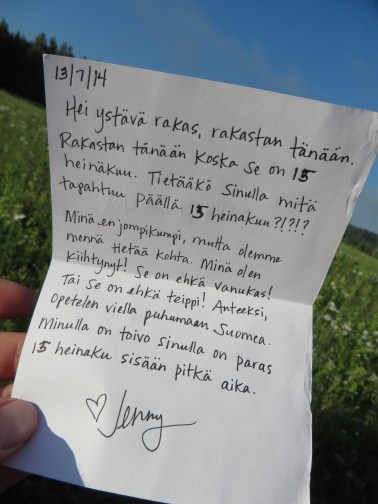 13/7/14
Hei ystävä rakas, rakastan tänään.
Rakastan tänään koska se on 15
heinäkuu. Tietääkö Sinulla mitä
tapahtuu päällä 15 heinakuu?!?!?
Minä en jompikumpi, mutta olemme
mennä tietää kohta. Minä olen
kiihtynyt! Se on ehkä vanukas!
Tai se on ehkä teippi! Anteeksi,
opetelen viella puhumaan Suomea.
Minulla on toivo sinulla on paras
15 heinaku sisään pitkä aika.
♡ Jenny